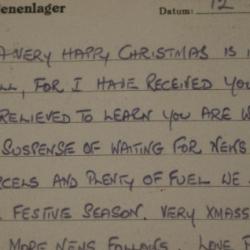 enenlager Datum: 12
A VERY HAPPY CHRISTMAS IS
LL, FOR I HAVE RECEIVED YOU
RELIEVED TO LEARN YOU ARE W
SUSPENSE OF WAITING FOR NEWS
RCELS AND PLENTY OF FUEL WE
FESTIVE SEASON. VERY XMASS
MORE NEWS FOLLOWS LOVE